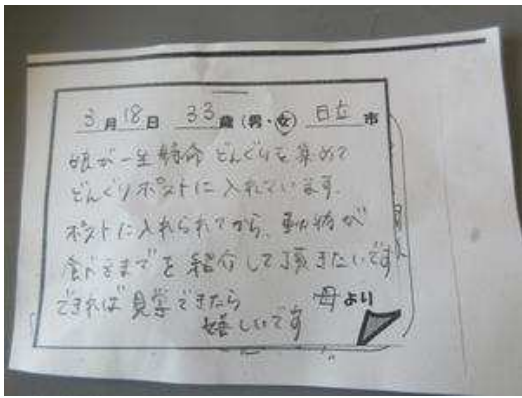 3月18日 33歳(男・女) 日立市
娘が一生懸命どんぐりを集めて
どんぐりポストに入れています。
ポストに入れられてから、動物が
食べるまでを紹介して頂きたいです
できれば見学できたら
嬉しいです
母より